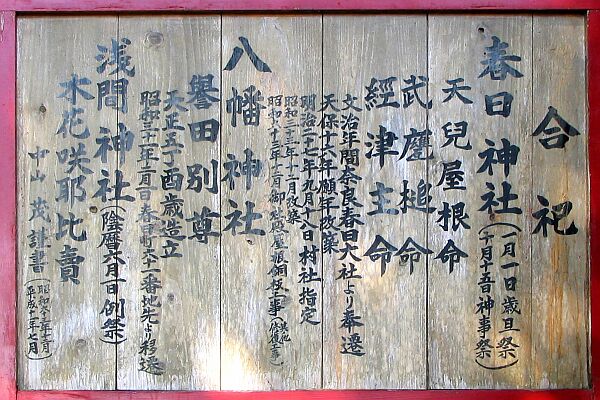 合祀
春日神社(一月一日歳旦祭 十月十五日神事祭)
天兒屋根命
武甕槌命
經津主命
文治年間奈良春日大社より奉遷
天保十二年願年改築
明治二十七年九月十八日村社指定
昭和三十三年十二月改築
昭和六十三年十二月御社殿屋根銅板工事(其他修復工事)
八幡神社
譽田別尊
天正五丁酉歳造立
昭和三十一年二月一日春日町六十一番地先より移遷
浅間神社(陰暦六月一日例祭)
木花咲耶比賣
中山茂謹書(昭和六十三年十二月 平成十年七月)